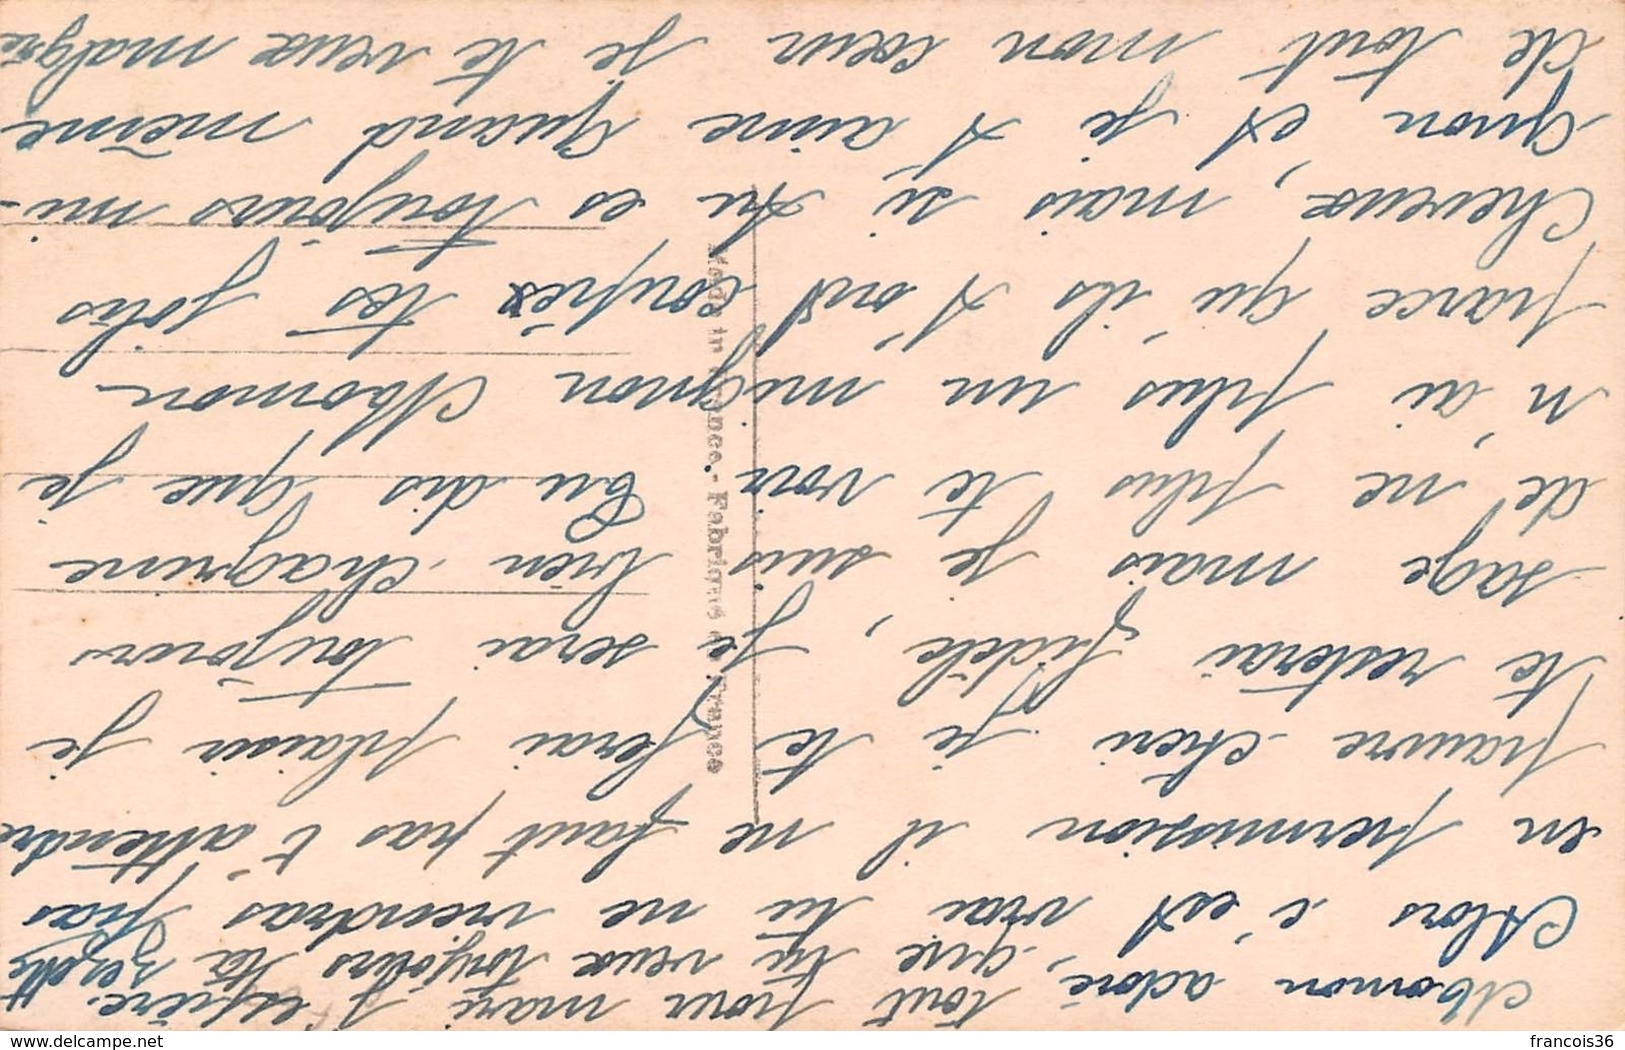 Momon adoré,
Alors c'est vrai tu ne viendras pas
en permission il ne faut pas t'attendre
pauvre chéri je te ferai plaisir je
te resterai fidèle, je serai toujours
sage mais je suis bien chagrine
de ne plus te voir Tu dis que je
n'ai plus un mignon Momon
parce qu'ils t'ont coupés tes jolis
Cheveux, mais si tu es toujours mi-
gnon, et je t aime quand même
de tout mon cœur je te veux malgré
tout pour mari j'espère
que tu veux toujours ta Zézette
Made in France - Fabriqué en France
delcampe.net
francois36